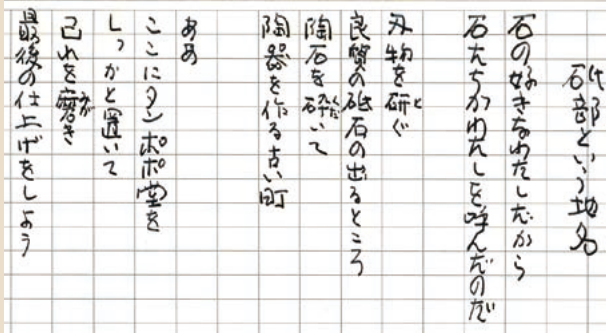 砥部という地名
石の好きなわたしだから
石たちがわたしを呼んだのだ
刃物を研ぐ
良質の砥石の出るところ
陶石を砕いて
陶器を作る古い町
ああ
ここにタンポポ堂を
しっかと置いて
己れを磨き
最後の仕上げをしよう